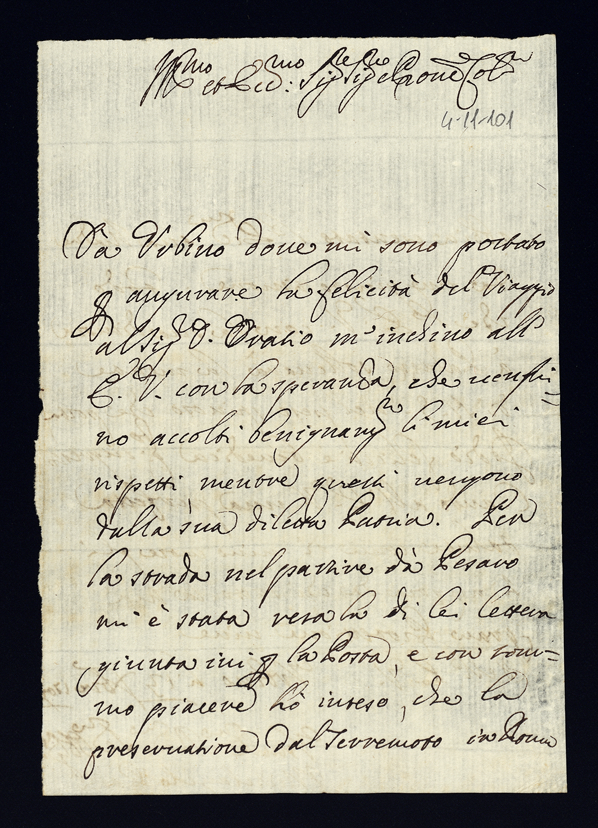 Ill.mo et Ecc.mo Sig.re Sig.re e Prone Col.mo
4-11-101
Da Urbino dove mi sono portato
p augurare la felicità del Viaggio
al Sig.r D. Oratio m'inchino all'
E. V. con la speranza, che venghi=
no accolti benignam.te li miei
rispetti mentre questi vengono
dalla sua diletta Patria. Per
la strada nel partire dà Pesaro
mi è stata resa la di lei lettera
giunta ivi p la Posta, e con som̃i=
mo piacere hò inteso, che la
preservatione dal Terremoto in Roma